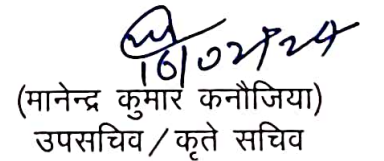 16/02/24
(मानेन्द्र कुमार कनौजिया)
उपसचिव / कृते सचिव